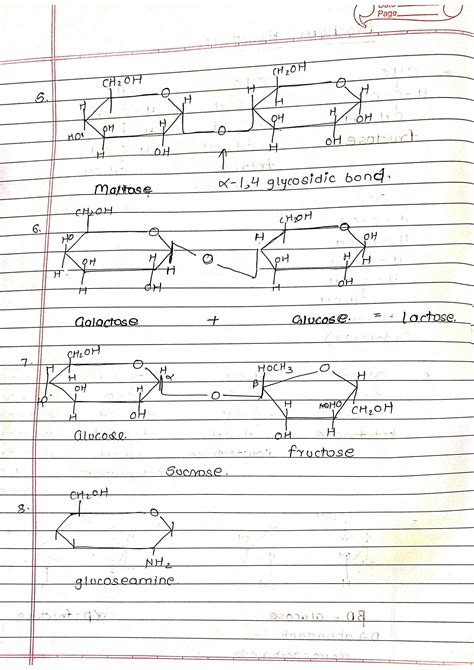 Page
5.
CH2OH O H H CH2OH O H
H HO OH H H OH O H OH H H OH H OH
Maltose α-1,4 glycosidic bond.
6. CH2OH O CH2OH O
HO H OH H H H OH O H OH H H OH H OH
Galactose + Glucose = Lactose.
7. CH2OH O H α HOCH3 O H
H H OH H H OH O β H OH H HO CH2OH
Glucose fructose
Sucrose.
8. CH2OH O
NH2
glucoseamine